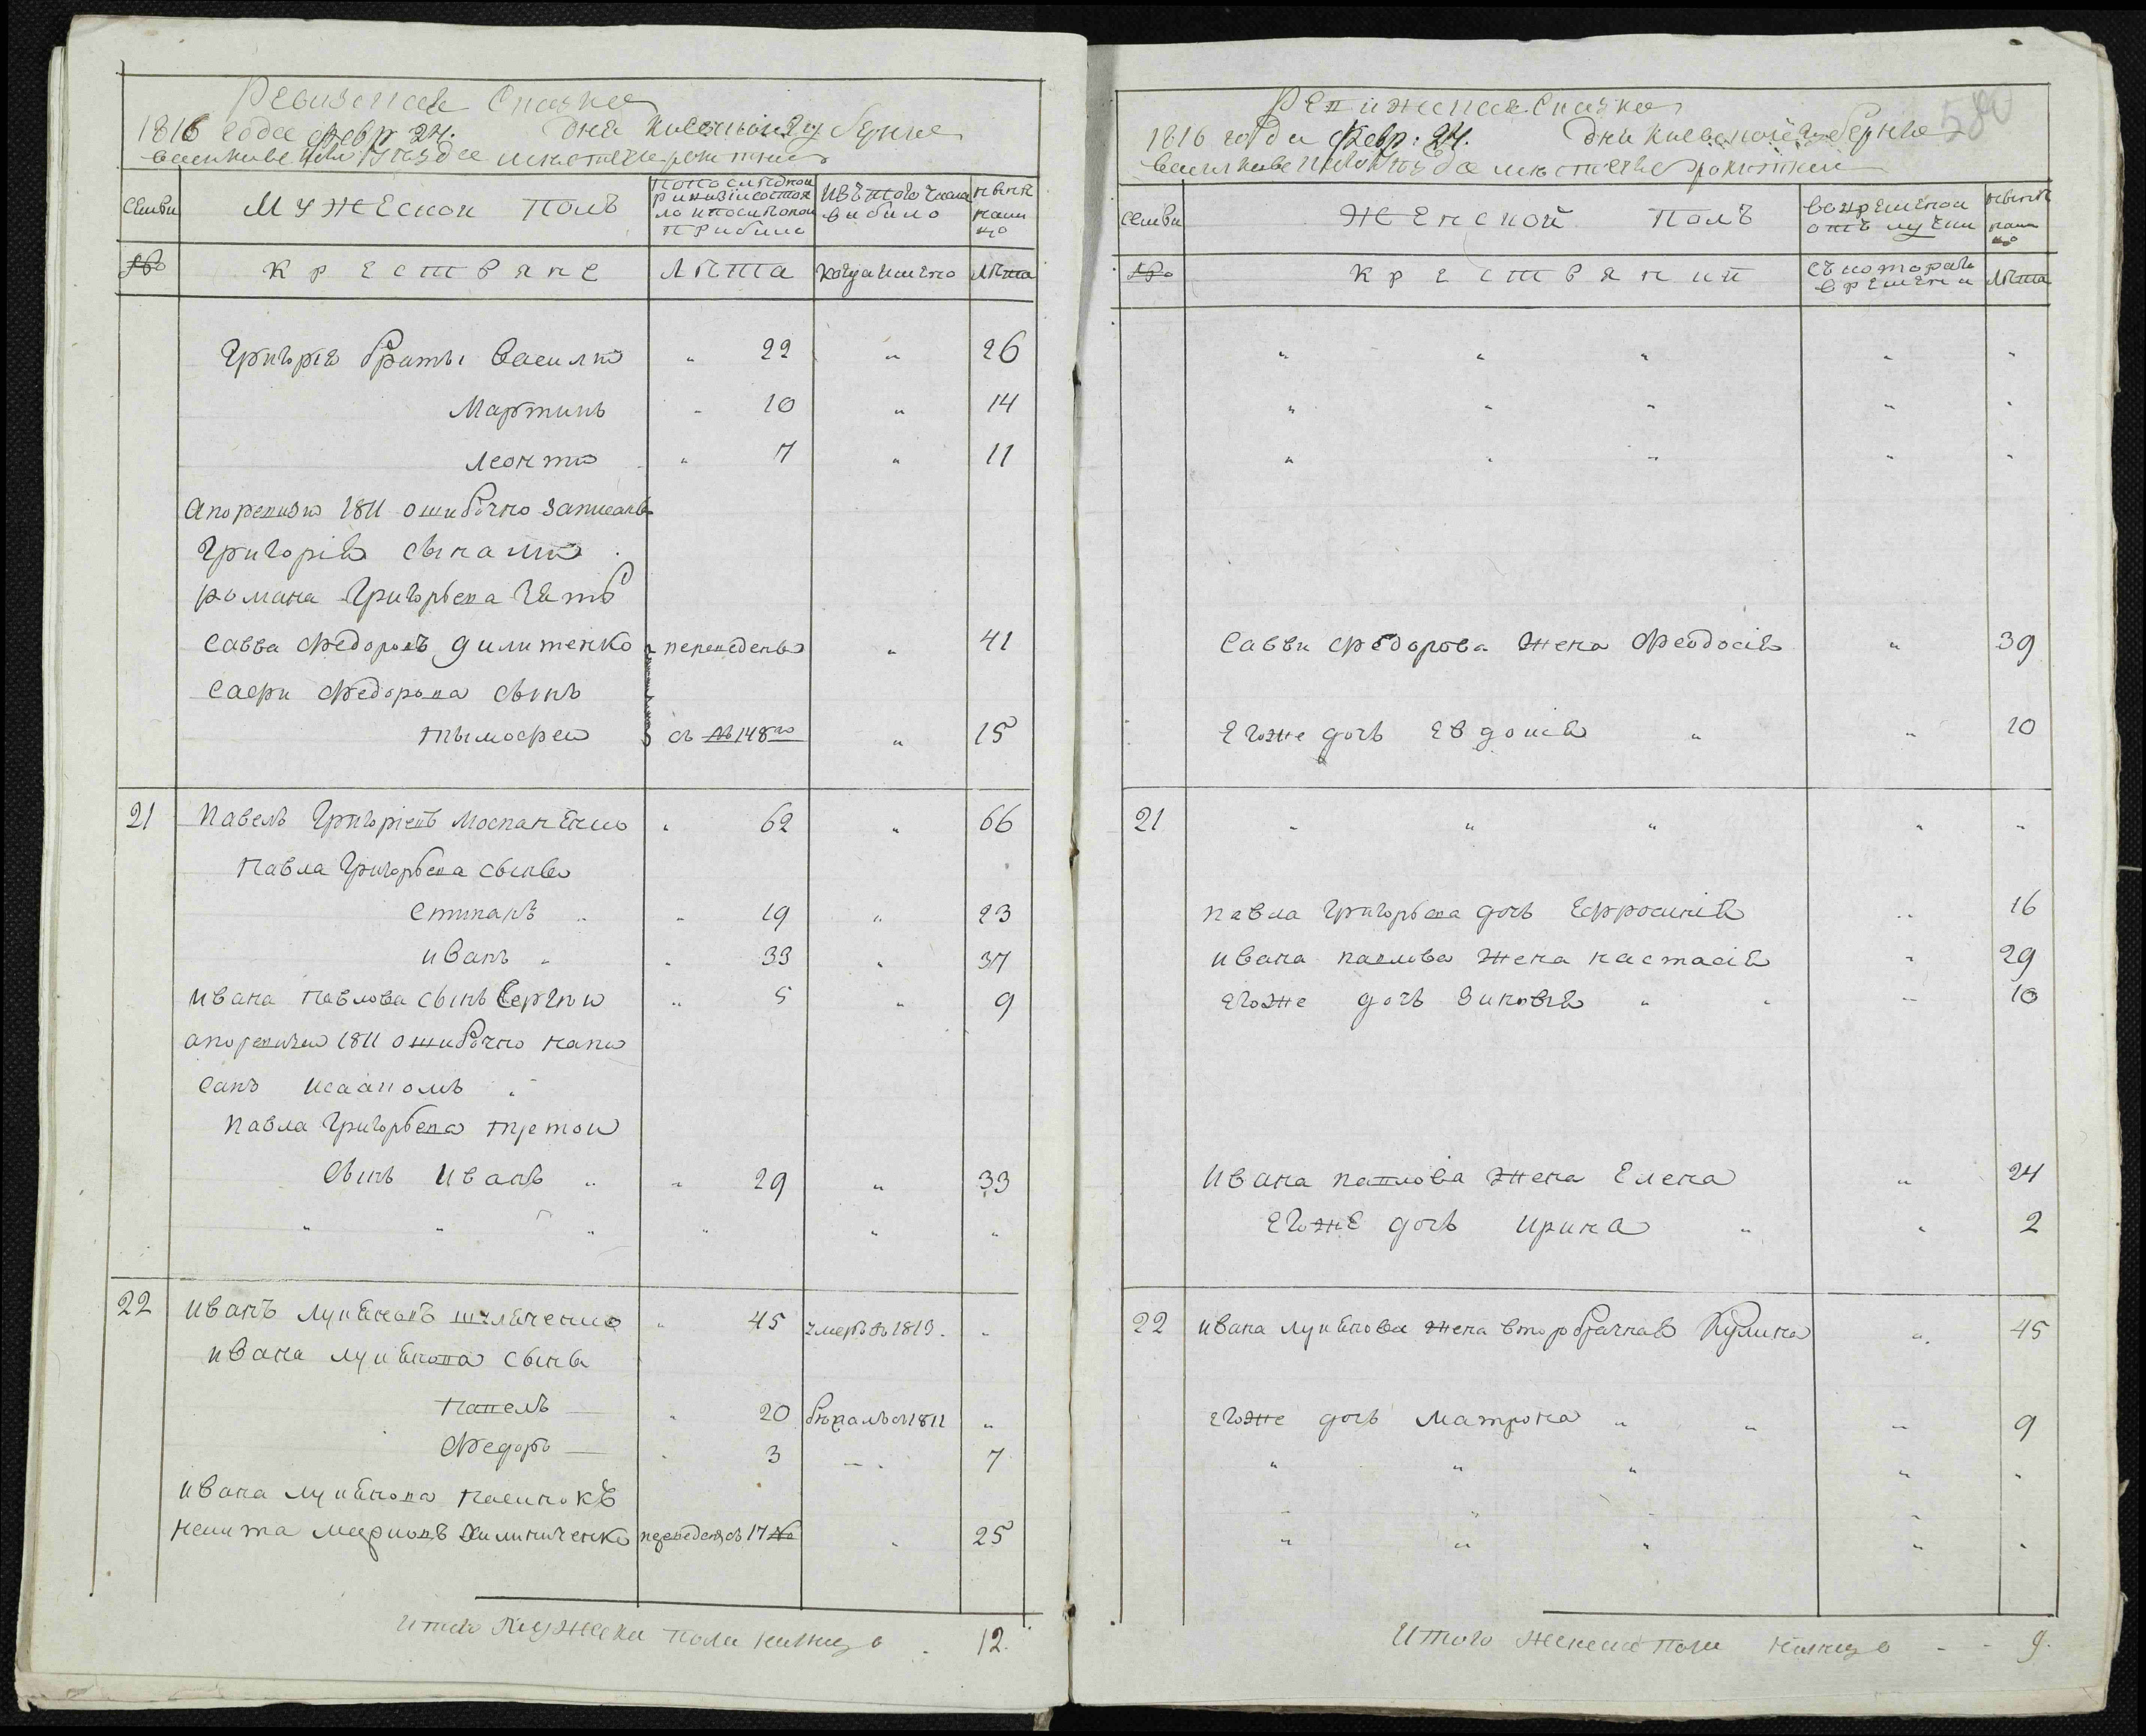 Ревизская Сказка
1816 года февр 24. дня киевской губернии
василковского уезда местечка рокитни
семьи
Мужеской Полъ
попоследной ревизии состояло и после оной прибило
изътого числа вибило
ныне налицо
№
крестьяне
Лета
когда имено
Лета
Григория Братьи Василий " 22 " 26
Мартинъ " 10 " 14
Леонтий " 7 " 11
апоревизии 1811 ошибочно записаны
Григория сынами
романа Григорьева зять
Савва Федоровъ дилитенко переведены " 41
Савы Федорова сынъ
тымофей съ №148го " 15
21 Павелъ Григориевъ Моспаненко " 62 " 66
Павла Григорьева сыны
Степанъ " 19 " 23
иванъ " 33 " 37
ивана Павлова сынъ Сергий " 5 " 9
апоревизии 1811 ошибочно напи
санъ исаакомъ
Павла Григорьева третои
сынъ иванъ " 29 " 33
" " " " " "
22 иванъ лукъяновъ шуляченко " 45 умеръ въ1813. "
ивана лукъянова сыны
Павелъ — " 20 бежалъ въ1811 "
Федоръ — " 3 — 7
ивана лукъянова пасинокъ
никита марковъ Калиниченко переведенъ съ 17 № " 25
Итого Мужеска пола налицо . 12.
580
Ревижская Сказка
1816 года февр. 24. дня киевской губернии
василковского уезда местечка рокитни
семьи
Женской Полъ
вовременой отълучки
ныне налицо
№
крестьянки
съкотораго времени
Лета
" " " " "
" " " " "
" " " " "
Саввы Федорова жена Феодосия " 39
Егоже дочь Евдокия " " 10
21 " " " " "
павла Григорьева дочь Ефросиния " 16
ивана павлова жена настасия " 29
Егоже дочь Зиновия " " — 10
ивана павлова жена Елена " 24
Егоже дочь Ирина " " 2
22 ивана лукъянова жена второбрачная Кулина " 45
Егоже дочь Матрона " " — 9
" " " " "
" " " " "
Итого женска пола налицо - - 9.